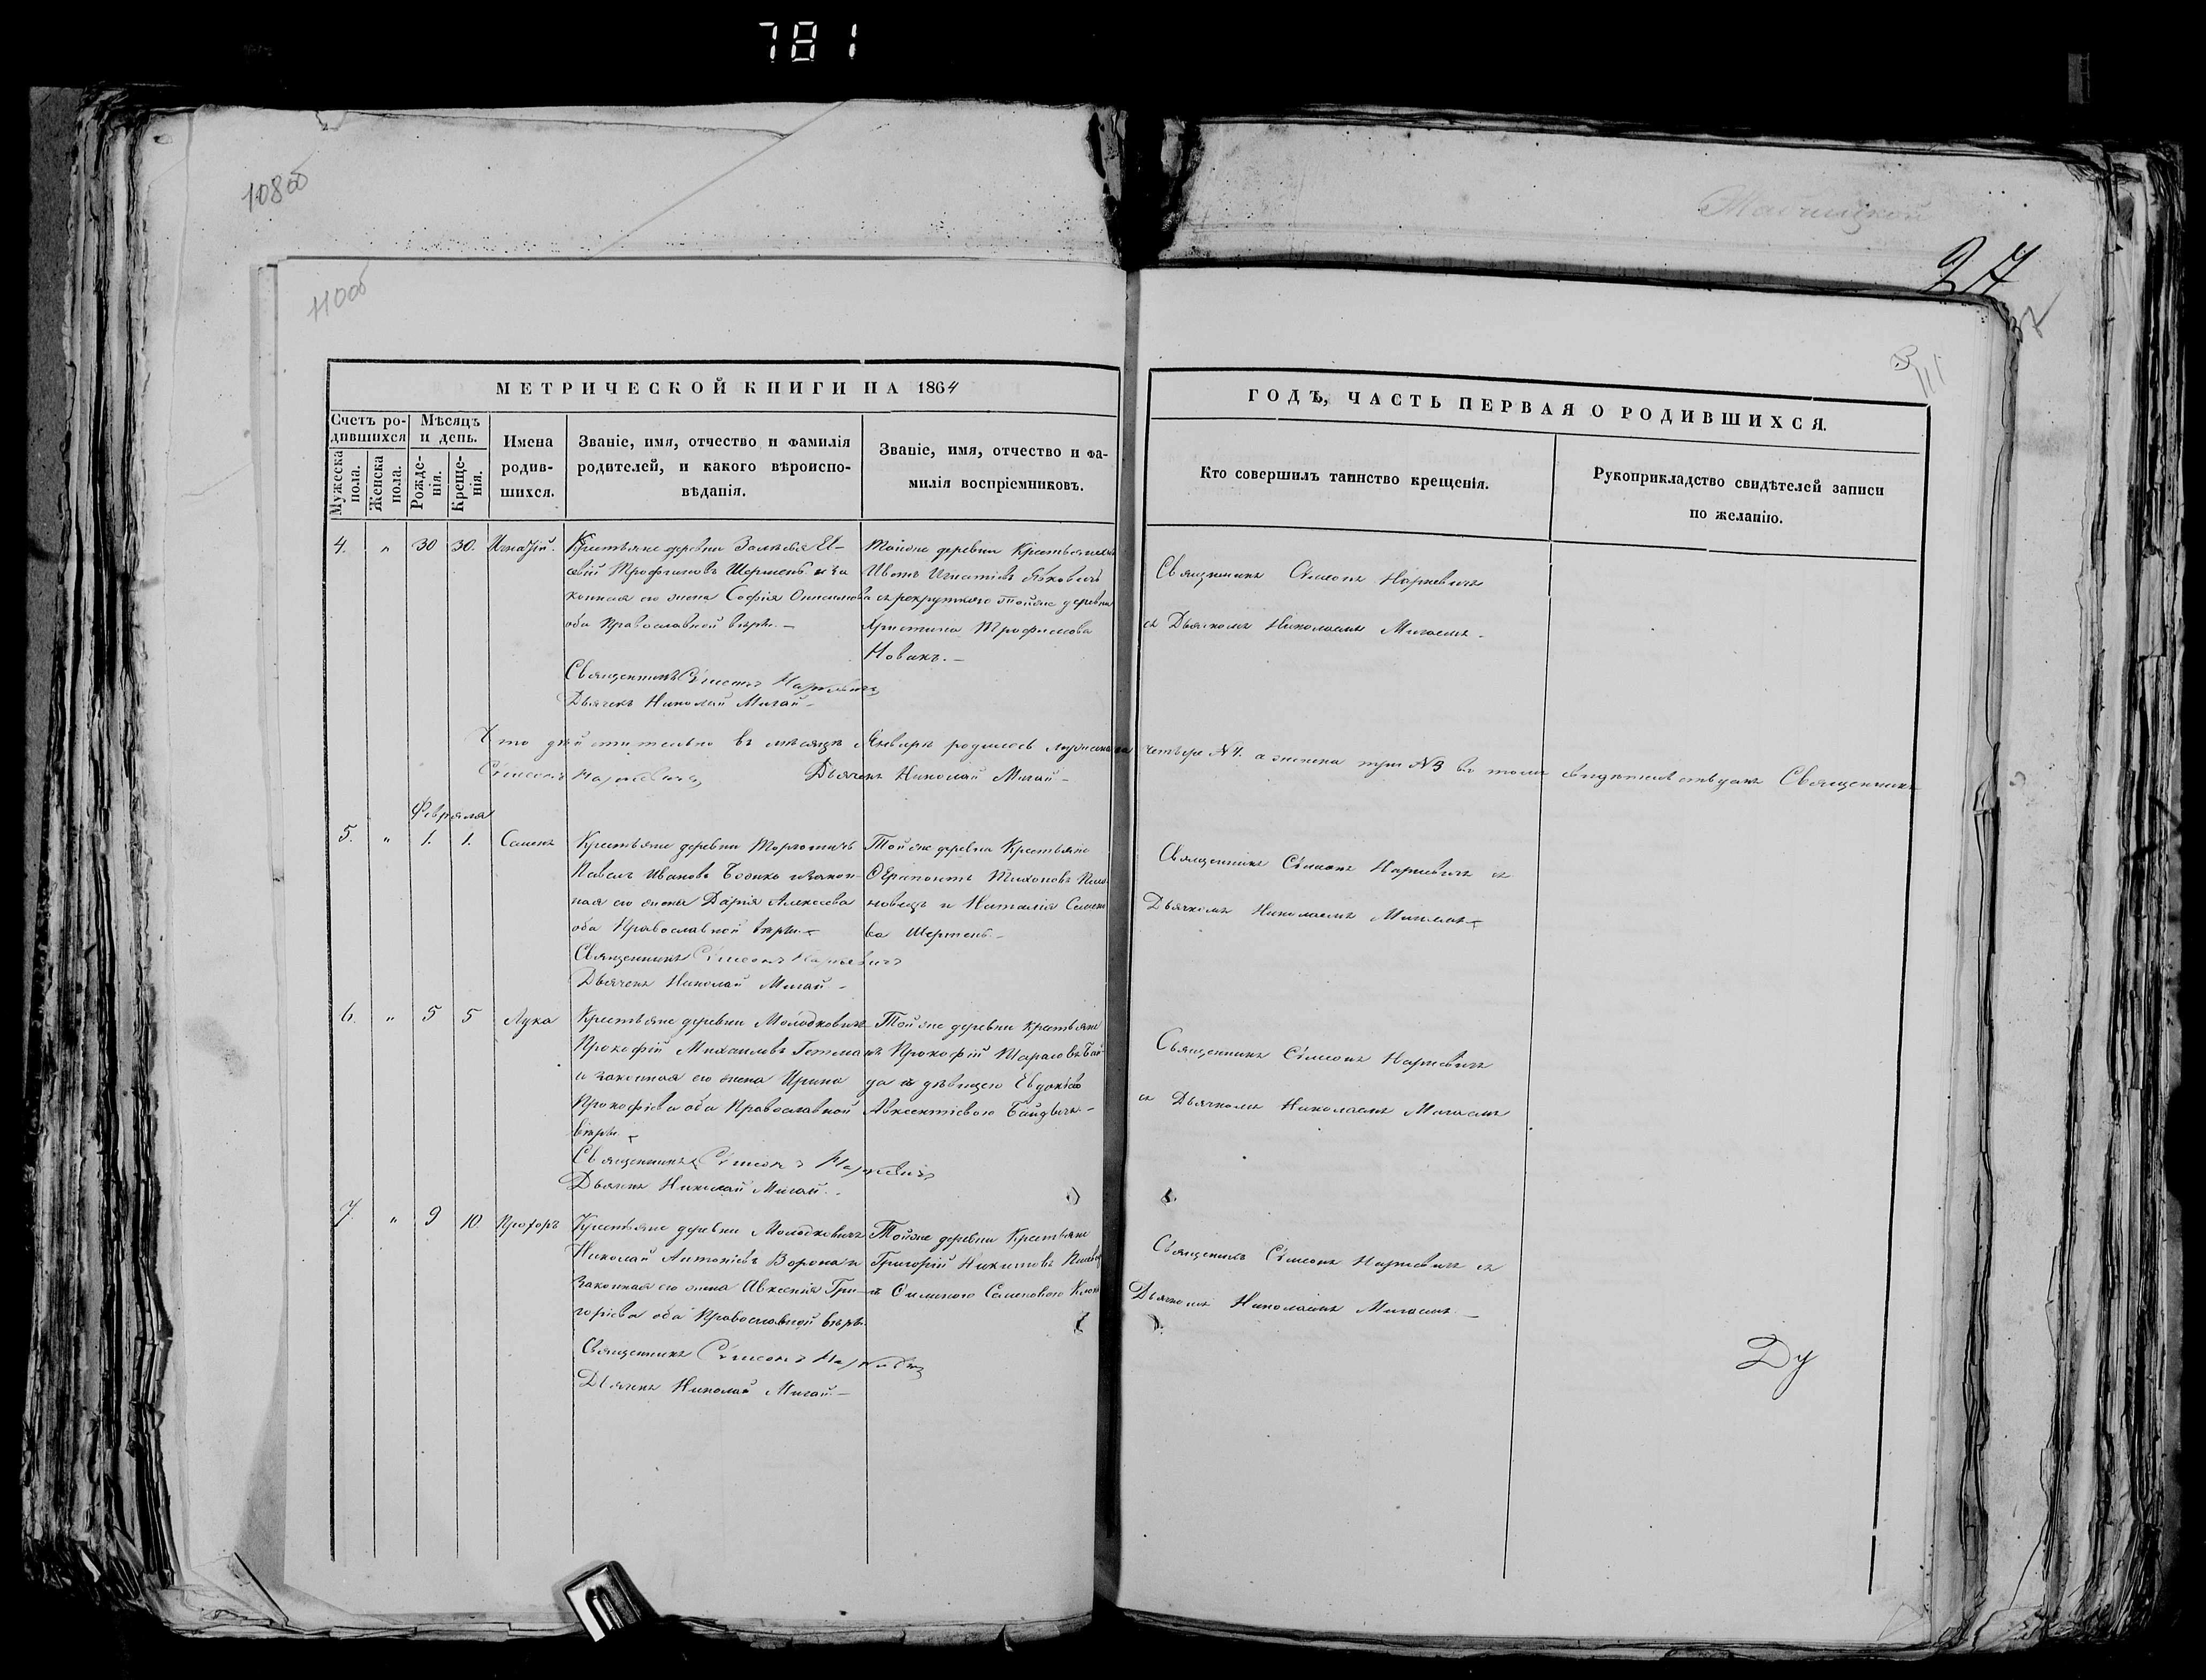 781
108об
110об
27
111
МЕТРИЧЕСКОЙ КНИГИ НА 1864
ГОДЪ, ЧАСТЬ ПЕРВАЯ О РОДИВШИХСЯ.
Счетъ ро-
дившихся
Мужеска
пола.
Женска
пола.
Мѣсяцъ
и день.
Рожде-
нія.
Креще-
нія.
Имена
родив-
шихся.
Званіе, имя, отчество и фамилія
родителей, и какого вѣроиспо-
вѣданія.
Званіе, имя, отчество и фа-
милія воспріемниковъ.
Кто совершилъ таинство крещенія.
Рукоприкладство свидѣтелей записи
по желанію.
4. " 30 30. Игнатій.
Крестьяне деревни
Трофимовъ Шермень и за
конная его жена Софія Онисимова
оба Православной вѣры.—
Священникъ Сѵмеонъ Наркевичъ
Дьячекъ Николай Мигай—
Тойже деревни Крестьянинъ
Иванъ Игнатіевъ
съ рекруткою тойже деревни
Христина Трофимова
Новикъ.—
Священникъ Сѵмеонъ Наркевичъ
съ Дьячкомъ Николаемъ Мигаемъ—
Что дѣйствительно въ мѣсяцѣ Январѣ родилось мужеска четыре №4. а женска три №3 въ томъ свидѣтельствуемъ Священникъ
Сѵмеонъ Наркевичъ Дьячекъ Николай Мигай—
Февраля
5. " 1. 1. Семенъ
Крестьяне деревни
Павелъ Ивановъ Бобико и закон-
ная его жена Дарія Алексеева
оба Православной вѣры.—
Священникъ Сѵмеонъ Наркевичъ
Дьячекъ Николай Мигай—
Тойже деревни Крестьяне
Ѳерапонтъ Тихоновъ
и Наталія Семено
ва Шермень—
Священникъ Сѵмеонъ Наркевичъ съ
Дьячкомъ Николаемъ Мигаемъ—
6. " 5 5 Лука
Крестьяне деревни Молодковичъ
Прокофій Михаиловъ Гетманъ
и законная его жена Ирина
Прокофіева оба Православной
вѣры.
Священникъ Сѵмеонъ Наркевичъ
Дьячекъ Николай Мигай—
Тойже деревни Крестьяне
Прокофій Тарасовъ Бай-
да съ дѣвицею Евдокіею
Авксентіевою
Священникъ Сѵмеонъ Наркевичъ
съ Дьячкомъ Николаемъ Мигаемъ
7. " 9 10. Прохоръ
Крестьяне деревни Молодковичъ
Николай Антоніевъ Ворона и
законная его жена Авксенія Гри-
горіева оба Православной вѣры.
Священникъ Сѵмеонъ Наркевичъ
Дьячекъ Николай Мигай—
Тойже деревни Крестьяне
Григорій Никитовъ
съ Семеновою
Священникъ Сѵмеонъ Наркевичъ съ
Дьячкомъ Николаемъ Мигаемъ—
Ду